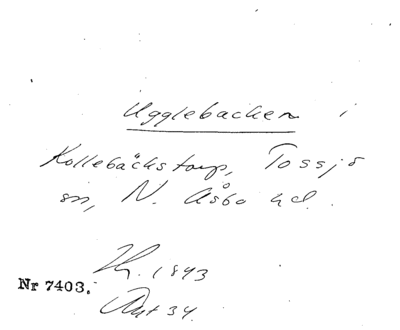 Ugglebacken i
Kollebäckstorp, Tossjö
sn, N. Åsbo hd.
1943
Nr 7403.
34.